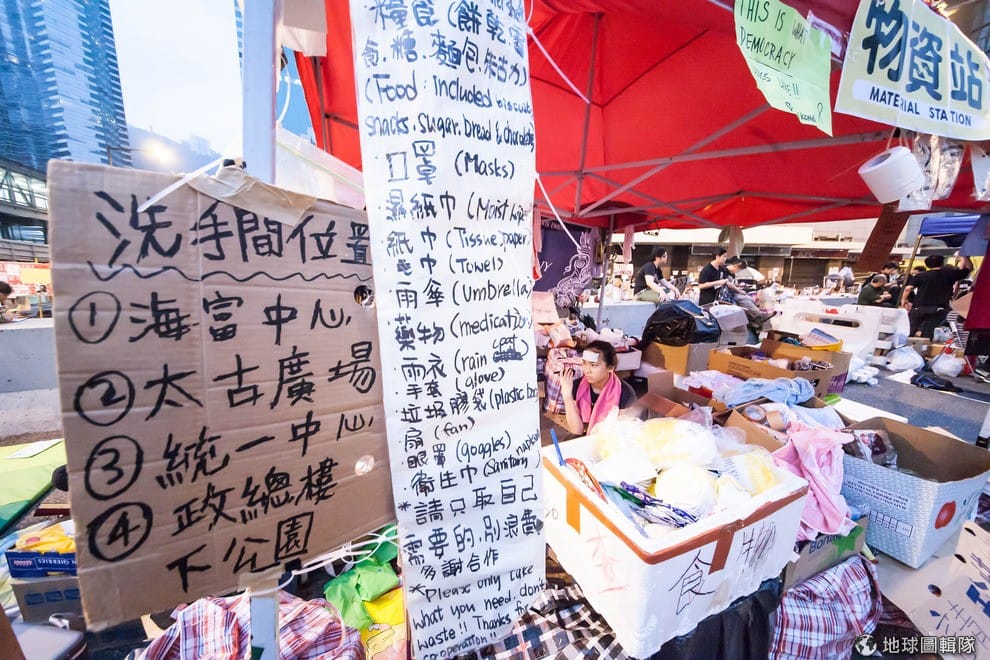 洗手間位置
① 海富中心
② 太古廣場
③ 統一中心
④ 政總樓
下公園
糧食 (餅乾
食、糖、麵包、朱古力)
(Food: included biscuits
snacks, sugar, bread & chocolate
口罩 (Masks)
濕紙巾 (Moist
紙巾 (Tissue paper)
毛巾 (Towel)
雨傘 (Umbrella)
藥物 (medication
雨衣 (rain coat)
手套 (glove)
垃圾膠袋 (plastic
扇 (fan)
眼罩 (goggles)
衛生巾 (Sanitary napkin
*請只取自己
需要的,別浪費
多謝合作
*please only take
what you need, don't
waste!! Thanks for
co-operation!!
THIS IS WHAT
DEMOCRACY
LOOKS LIKE!!
物資站
MATERIAL STATION
食物
地球圖輯隊